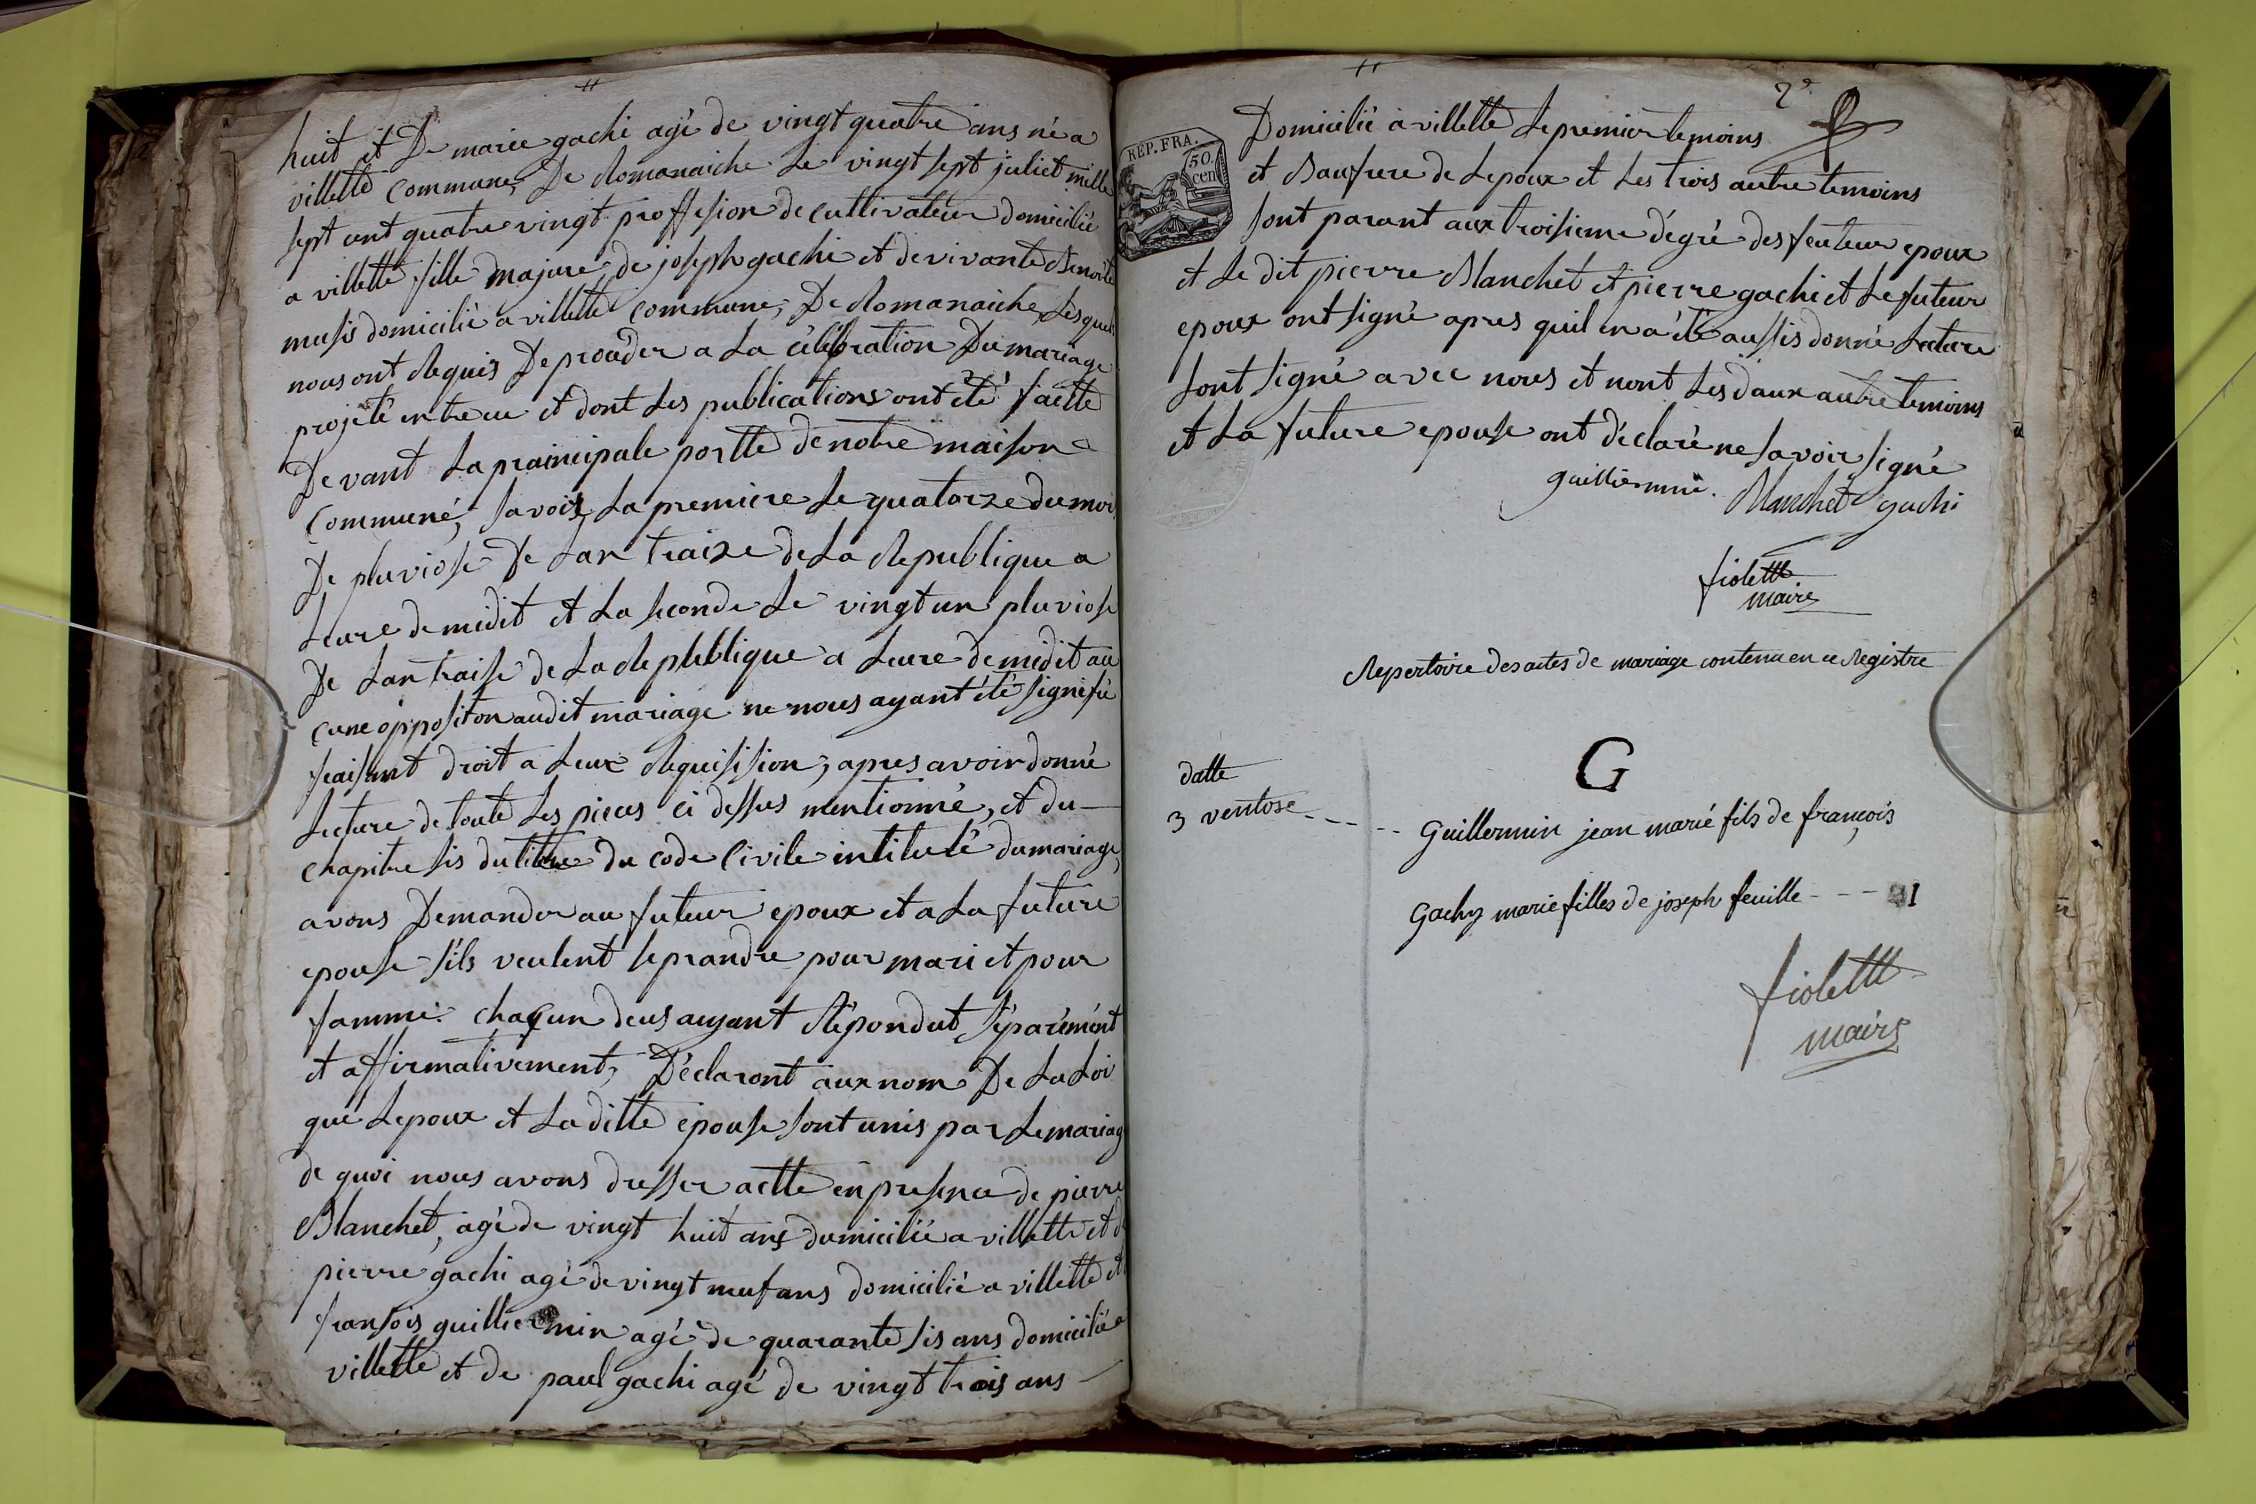 huit et De marie gachi agé de vingt quatre ans né a
villette commune De Romanaiche Le vingt sept juliet mille
sept cent quatre vingt proffesion de cultivateur domicilié
a villette fille majure de joseph gachi et de vivante Benoite
musis domicilié a villette commune, De Romanaiche, Lesquels
nous ont Requis De proceder a La célébration Du mariage
projeté entre eu et dont Les publications ont été faitte
Devant La praincipale portte de notre maison
Commune, savoir La premiere Le quatorze du moi
De pluviose De Lan traize de La Republique a
Leure de midit et La seconde Le vingt un pluviose
De Lan traise de La Republique a Leure de midit au
cune oppositon audit mariage ne nous ayant été signifié
faisant droit a Leur Requisision; apres avoir donné
Lecture de toute Les pieces ci dessus mentionné, et du
chapitre sis du titre du code Civile intitulé du mariage,
avons Demander au futeur epoux et a La future
epouse s'ils veulent se prandre pour mari et pour
famme. chaqun deus aeyant Répondut séparément
et affirmativement, Déclaront aux nom De La Loi
que Lepoux et La ditte épouse sont unis par Le mariag
de quoi nous avons dresser actte en presence de pierre
Blanchet, agé de vingt huit ans domicilié a villette et d
pierre gachi agé de vingt neuf ans domicilié a villette et
fransois guilliermin agé de quarante sis ans domicilié a
villette et de paul gachi agé de vingt trois ans
2e
REP. FRA.
50
cen
Domicilié a villette Le premier temoins
et Baufrere de Lepoux et Les trois autre temoins
sont parant aux troisieme dégré des feuteur epoux
et Le dit pierre Blanchet et pierre gachi et Le futeur
epoux ont signé apres quil en a été aussis donné Lecture
sont signé avec nous et nont Les daux autre temoins
et La future epouse ont déclaré ne savoir signé
guilliermin. Blanchet gachi
fiolette
maire
Repertoire des actes de mariage contenu en ce Registre
G
datte
3 ventose ----- Guillermin jean marié fils de françois
Gachy marie filles de joseph feuille --- 1
fiolette
maire